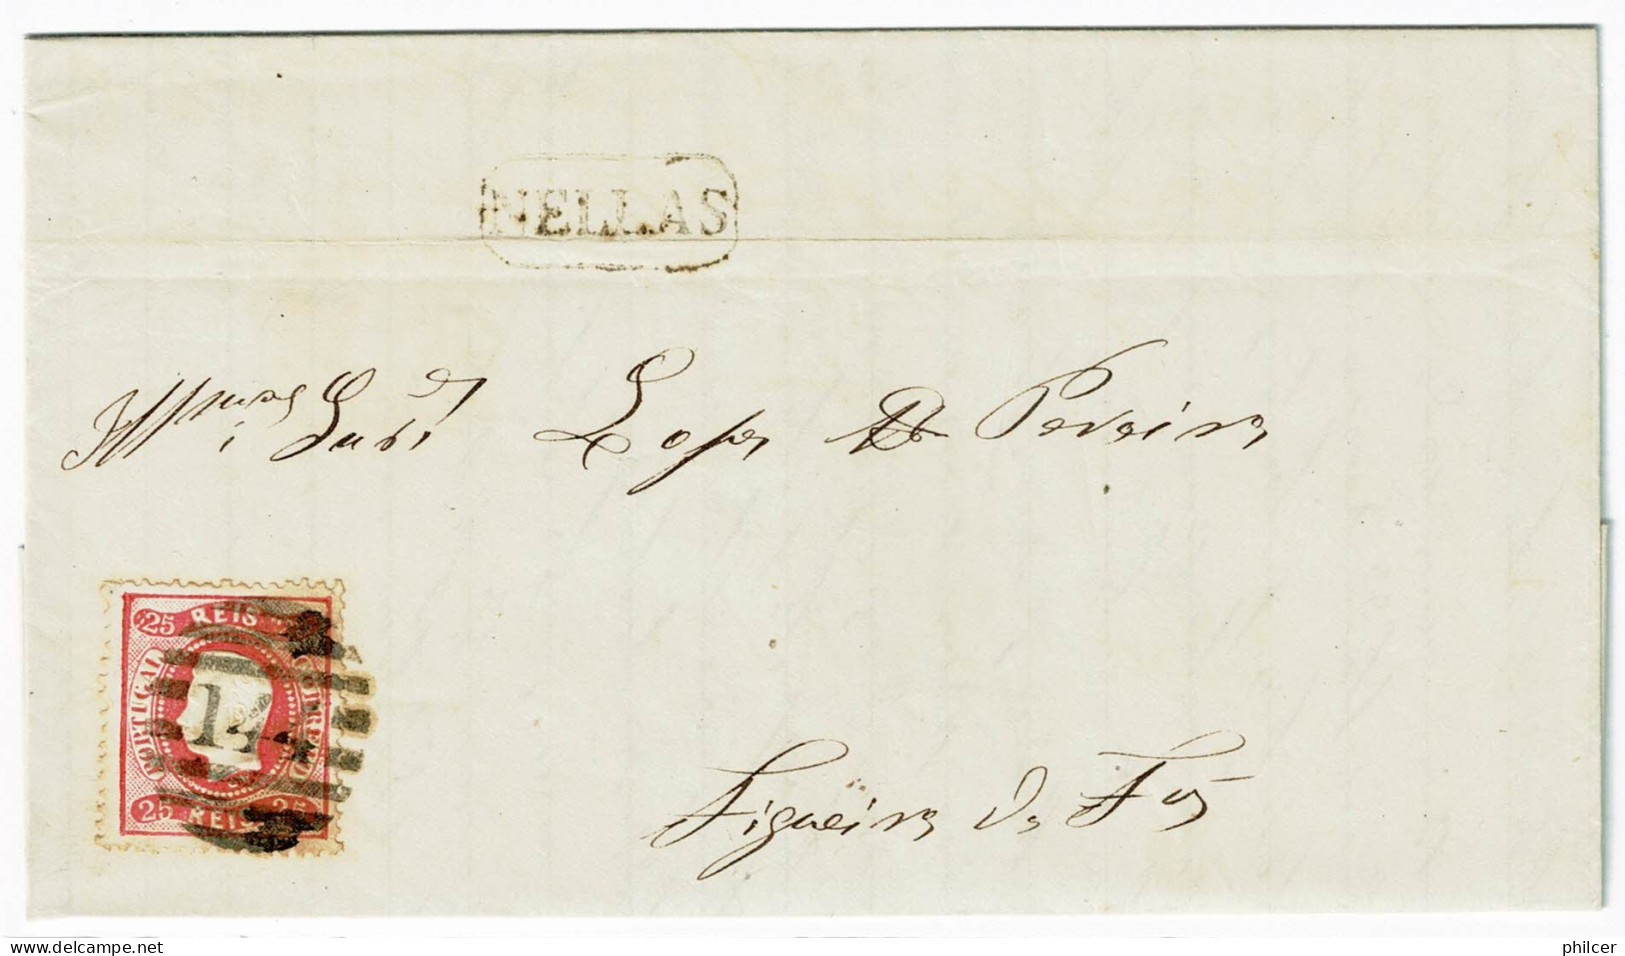 NELLAS
Illmos Snrs Lopes & Pereira
25 REIS
PORTUGAL CORREIO
25 REIS 25
Figueira da Foz
www.delcampe.net
philcer